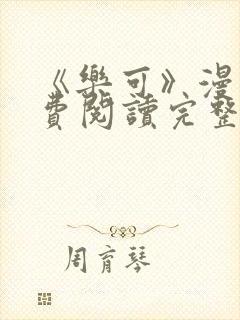 《樂可》漫
費閱讀完整
周育琴